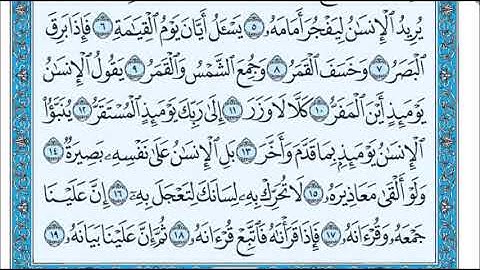 يُرِيدُ ٱلْإِنسَٰنُ لِيَفْجُرَ أَمَامَهُۥ ٥ يَسْـَٔلُ أَيَّانَ يَوْمُ ٱلْقِيَٰمَةِ ٦ فَإِذَا بَرِقَ
ٱلْبَصَرُ ٧ وَخَسَفَ ٱلْقَمَرُ ٨ وَجُمِعَ ٱلشَّمْسُ وَٱلْقَمَرُ ٩ يَقُولُ ٱلْإِنسَٰنُ
يَوْمَئِذٍ أَيْنَ ٱلْمَفَرُّ ١٠ كَلَّا لَا وَزَرَ ١١ إِلَىٰ رَبِّكَ يَوْمَئِذٍ ٱلْمُسْتَقَرُّ ١٢ يُنَبَّؤُا۟
ٱلْإِنسَٰنُ يَوْمَئِذٍۭ بِمَا قَدَّمَ وَأَخَّرَ ١٣ بَلِ ٱلْإِنسَٰنُ عَلَىٰ نَفْسِهِۦ بَصِيرَةٌ ١٤
وَلَوْ أَلْقَىٰ مَعَاذِيرَهُۥ ١٥ لَا تُحَرِّكْ بِهِۦ لِسَانَكَ لِتَعْجَلَ بِهِۦٓ ١٦ إِنَّ عَلَيْنَا
جَمْعَهُۥ وَقُرْءَانَهُۥ ١٧ فَإِذَا قَرَأْنَٰهُ فَٱتَّبِعْ قُرْءَانَهُۥ ١٨ ثُمَّ إِنَّ عَلَيْنَا بَيَانَهُۥ ١٩